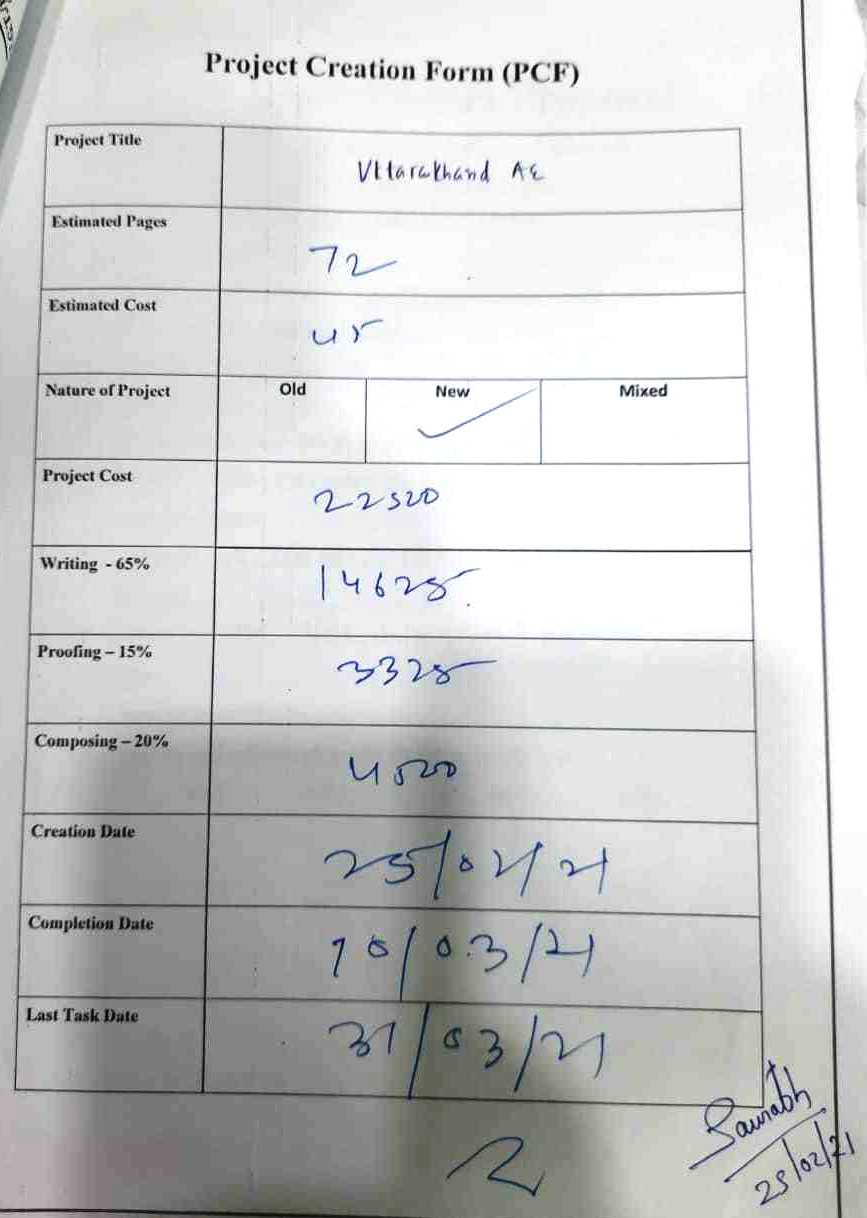 Project Creation Form (PCF)
Project Title Uttarakhand AE
Estimated Pages 72
Estimated Cost 45
Nature of Project Old New ✓ Mixed
Project Cost 22500
Writing - 65% 14625
Proofing – 15% 3325
Composing – 20% 4500
Creation Date 25/02/21
Completion Date 10/03/21
Last Task Date 31/03/21
Saurabh
25/02/21